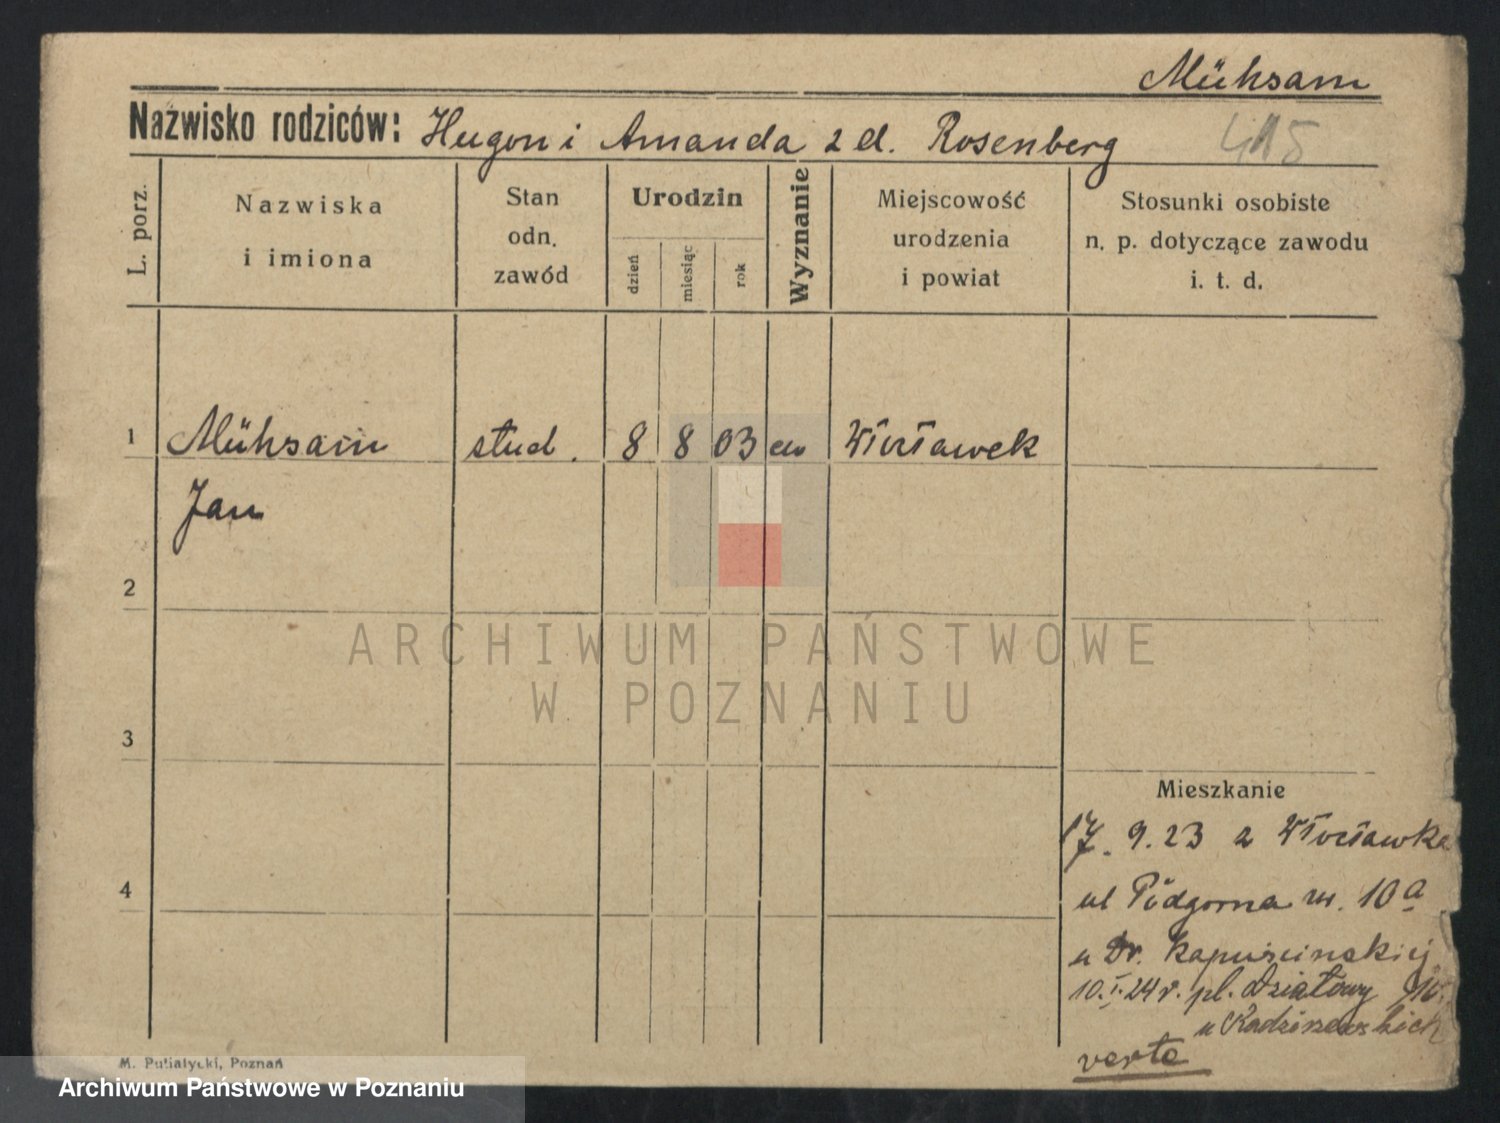 Mühsam
Nazwisko rodziców: Hugon i Amanda z d. Rosenberg 415
L. porz.
Nazwiska
i imiona
Stan
odn.
zawód
Urodzin
dzień
miesiąc
rok
Wyznanie
Miejscowość
urodzenia
i powiat
Stosunki osobiste
n. p. dotyczące zawodu
i. t. d.
1 Mühsam stud. 8 8 03 ew Włocławek
Jan
2
ARCHIWUM PAŃSTWOWE
W POZNANIU
3
Mieszkanie
17. 9. 23 z Włocławka
4
ul Podgorna nr. 10a
u Dr. Kapuścinskiej
10.I.24 r. pl. Działowy
u
verte
M. Putiatycki, Poznań
Archiwum Państwowe w Poznaniu